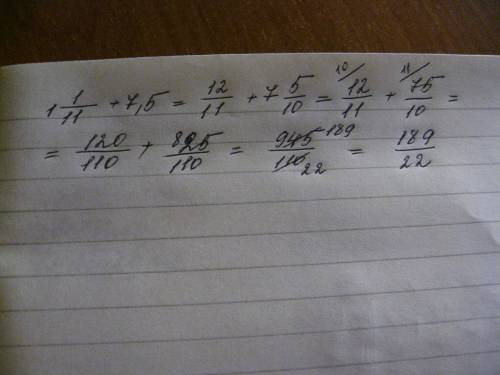 1 1/11 + 7,5 = 12/11 + 7 5/10 = 10/ 12/11 + 11/ 75/10 =
= 120/110 + 825/110 = 945/110 189/22 = 189/22